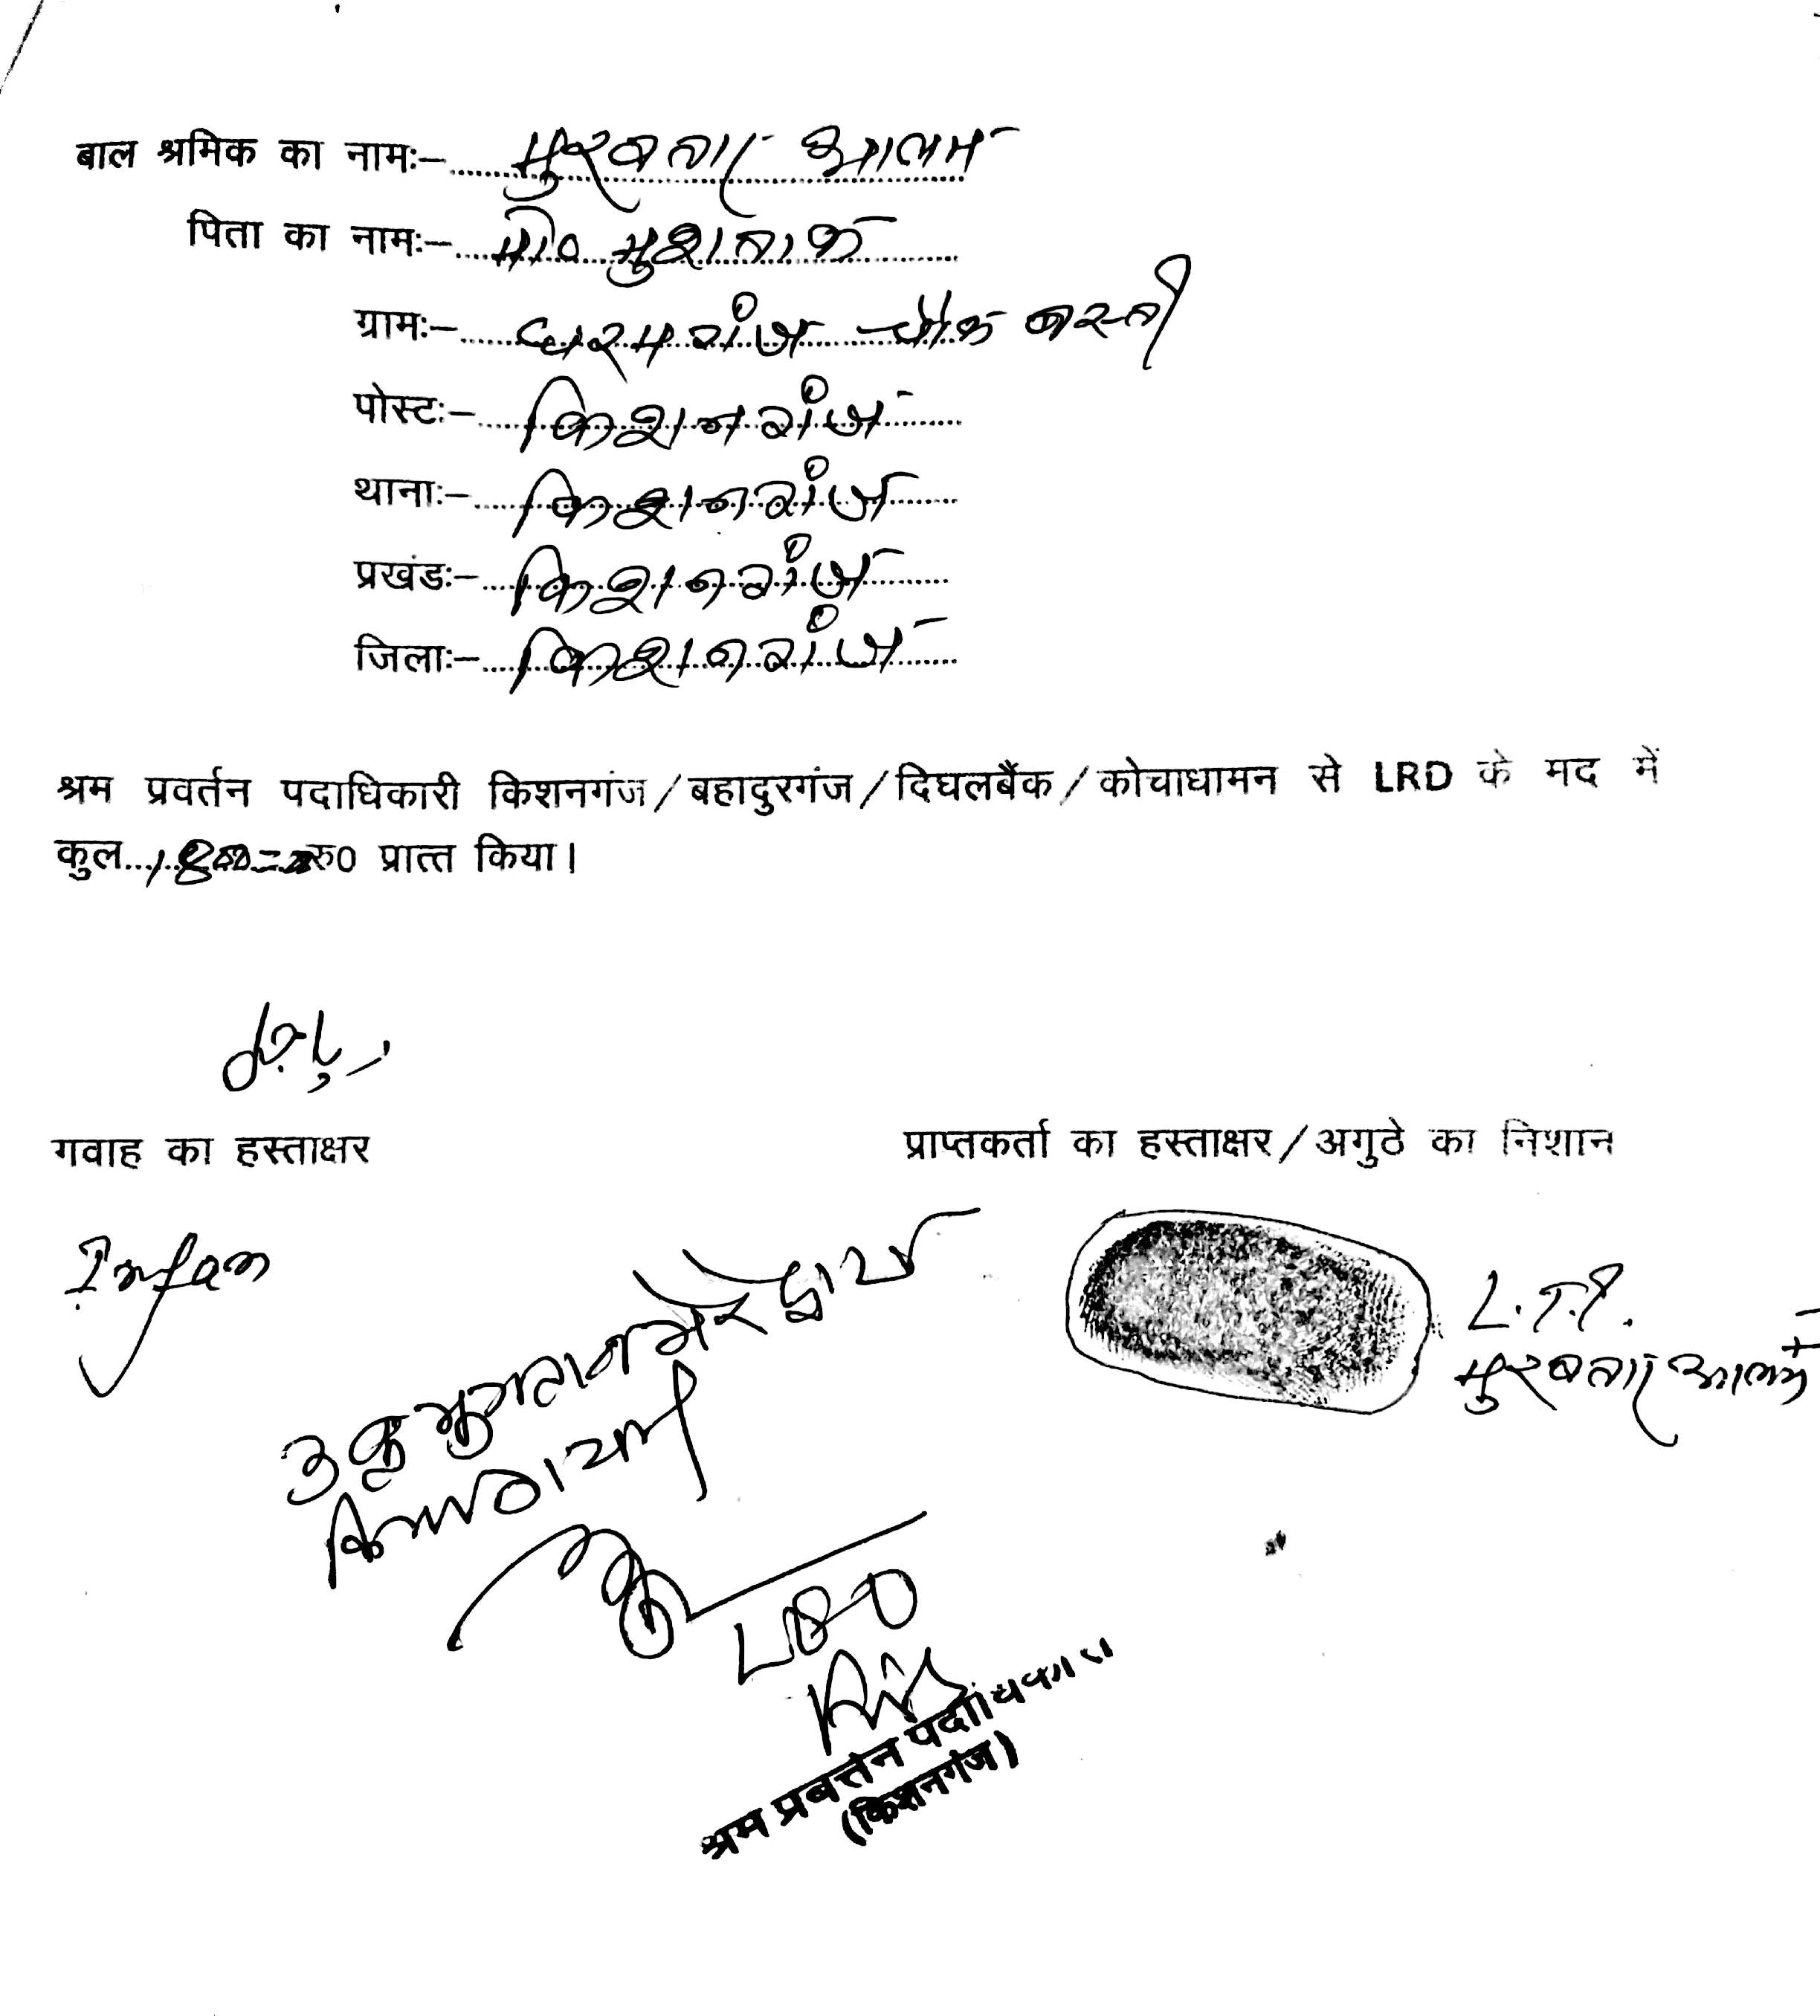 बाल श्रमिक का नामः– मुरबतार आलम
पिता का नामः– मो0 मुशताक
ग्रामः– धरमगंज चौक बस्ती
पोस्टः– किशनगंज
थानाः– किशनगंज
प्रखंडः– किशनगंज
जिलाः– किशनगंज
श्रम प्रवर्तन पदाधिकारी किशनगंज/बहादुरगंज/दिघलबैंक/कोचाधामन से LRD के मद में
कुल 1800=00 रु0 प्रात्त किया।
गवाह का हस्ताक्षर
प्राप्तकर्ता का हस्ताक्षर/अगुठे का निशान
Irfan
L.T.I.
मुरबतार आलम
उक्त भुगतान मेरे द्वारा
किया गया
श्रम प्रबर्त्तन पदाधिकारी
(किशनगंज)